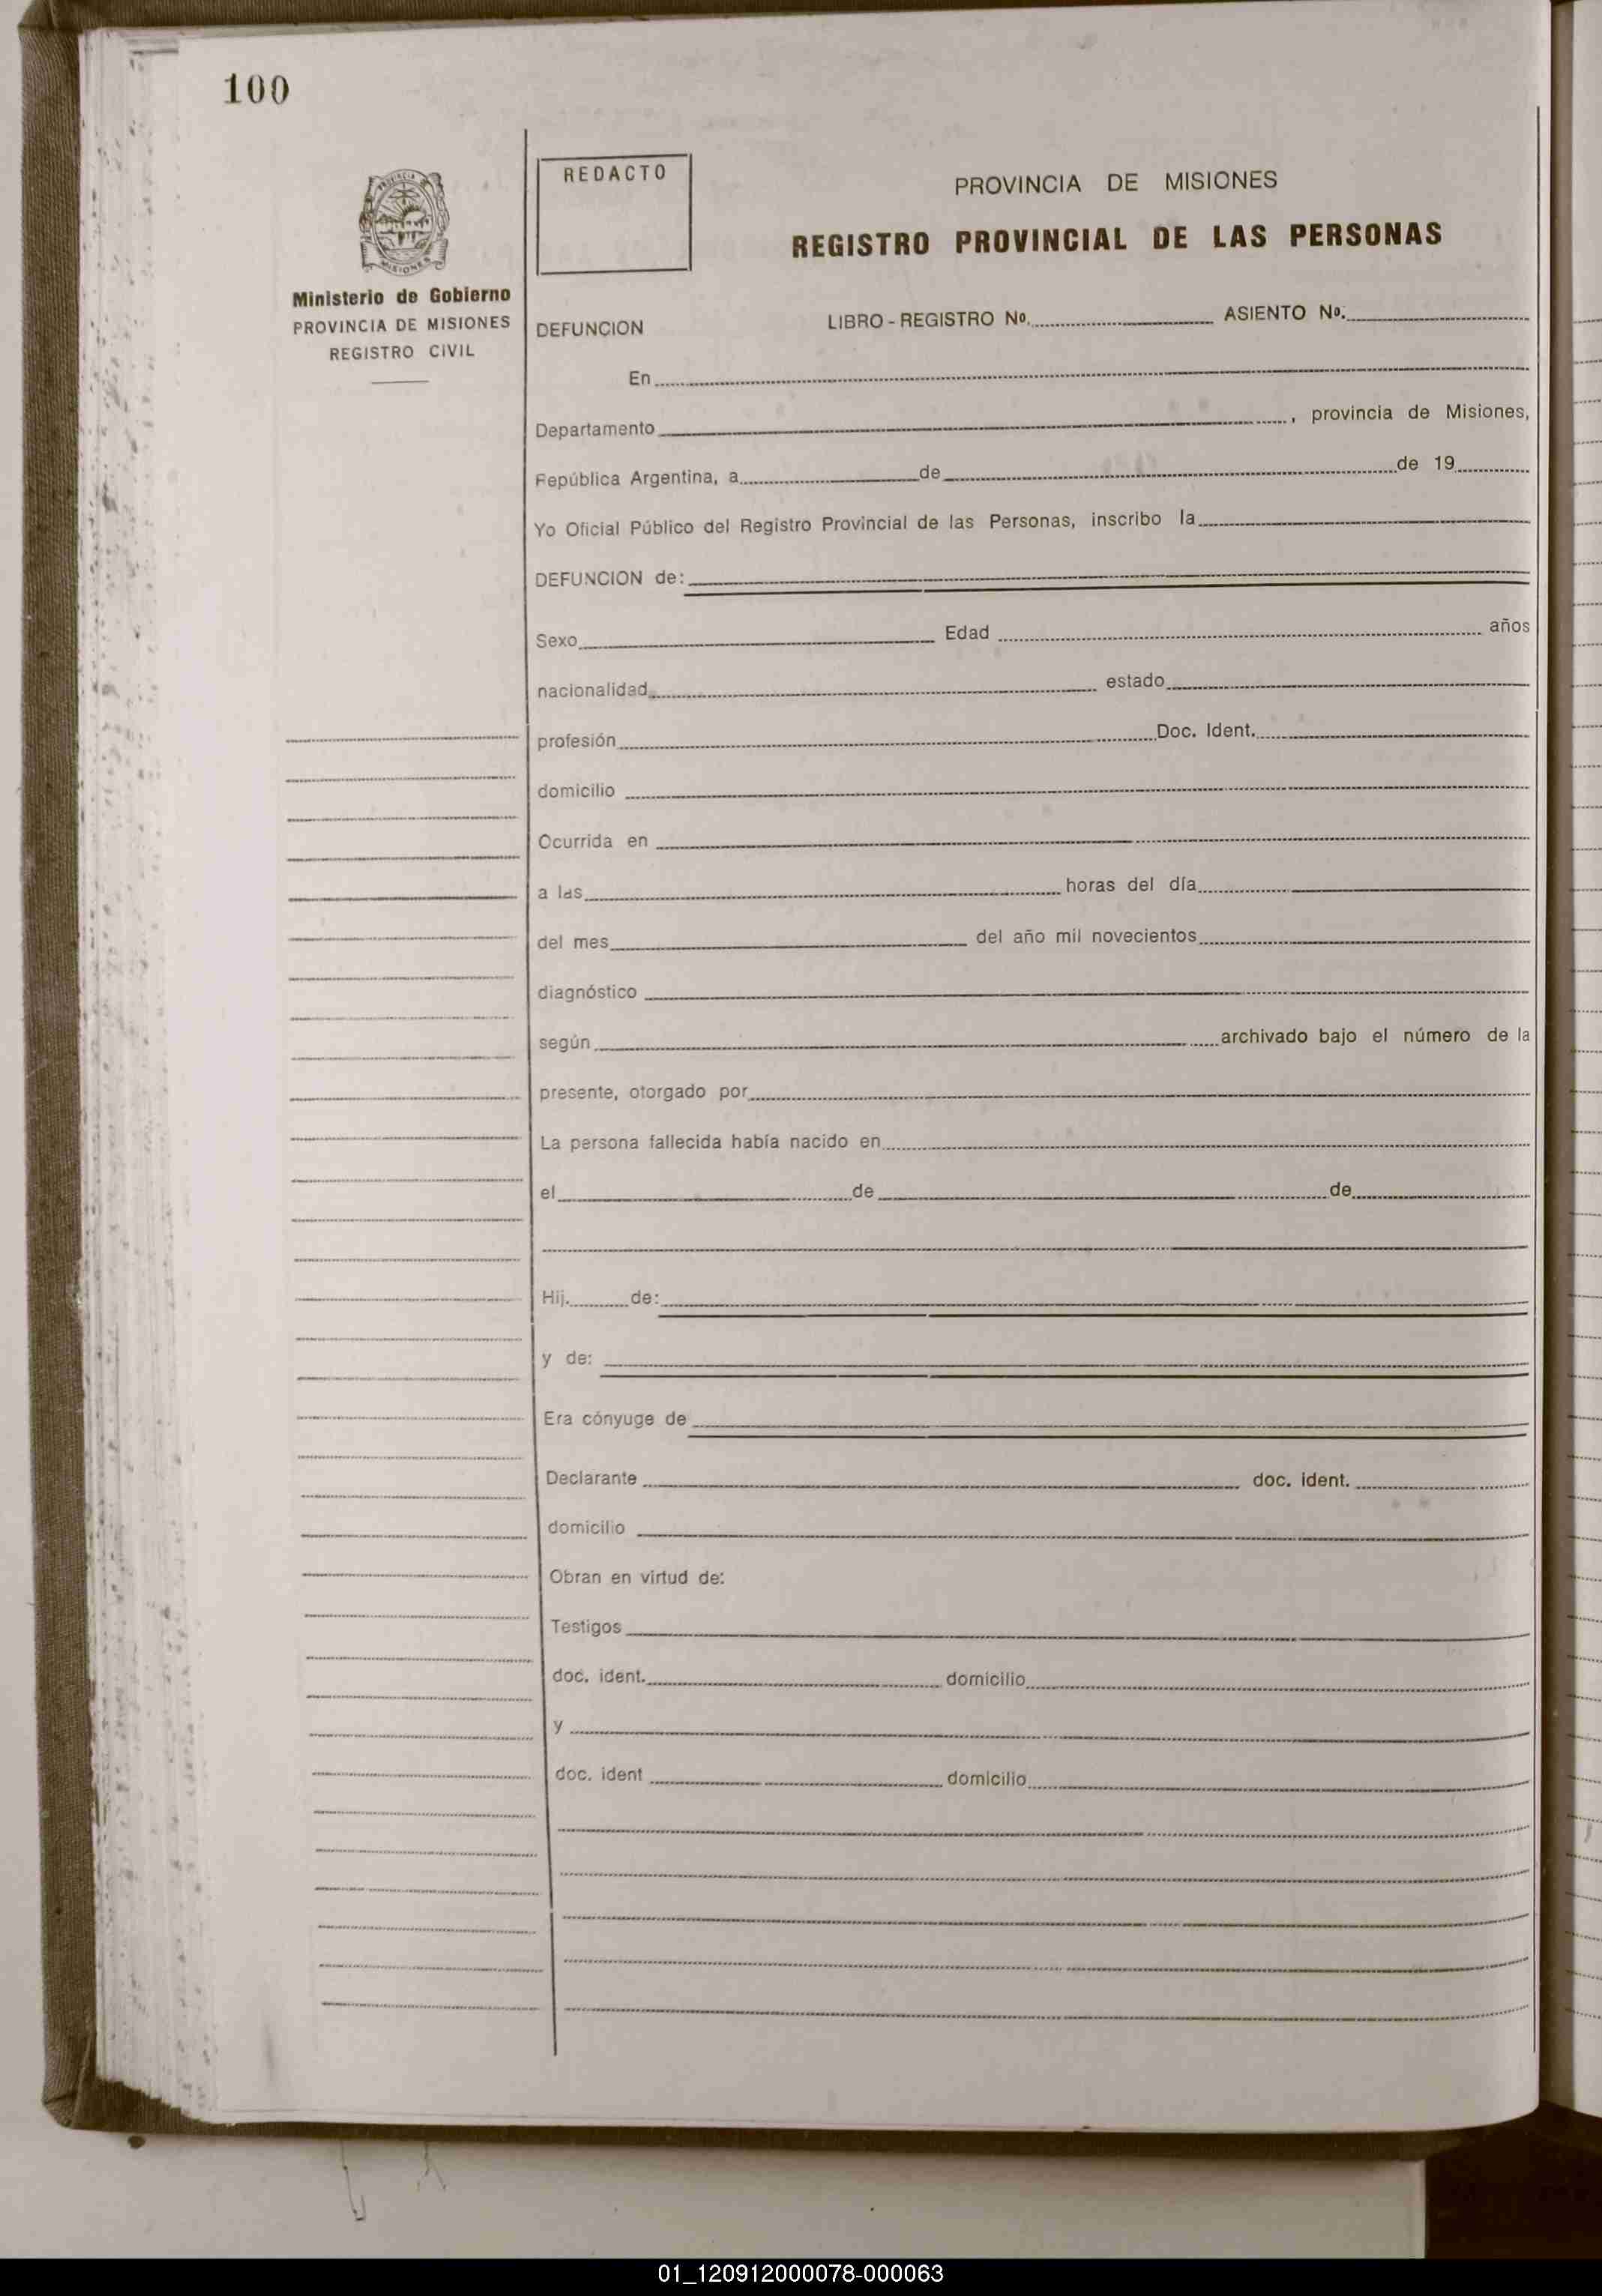 100
PROVINCIA
MISIONES
Ministerio de Gobierno
PROVINCIA DE MISIONES
REGISTRO CIVIL
REDACTO
PROVINCIA DE MISIONES
REGISTRO PROVINCIAL DE LAS PERSONAS
DEFUNCION LIBRO - REGISTRO Nº. ASIENTO Nº.
En
Departamento , provincia de Misiones,
República Argentina, a de de 19
Yo Oficial Público del Registro Provincial de las Personas, inscribo la
DEFUNCION de:
Sexo Edad años
nacionalidad estado
profesión Doc. Ident.
domicilio
Ocurrida en
a las horas del día
del mes del año mil novecientos
diagnóstico
según archivado bajo el número de la
presente, otorgado por
La persona fallecida había nacido en
el de de
Hij. de:
y de:
Era cónyuge de
Declarante doc. ident.
domicilio
Obran en virtud de:
Testigos
doc. ident. domicilio
y
doc. ident domicilio
01_120912000078-000063